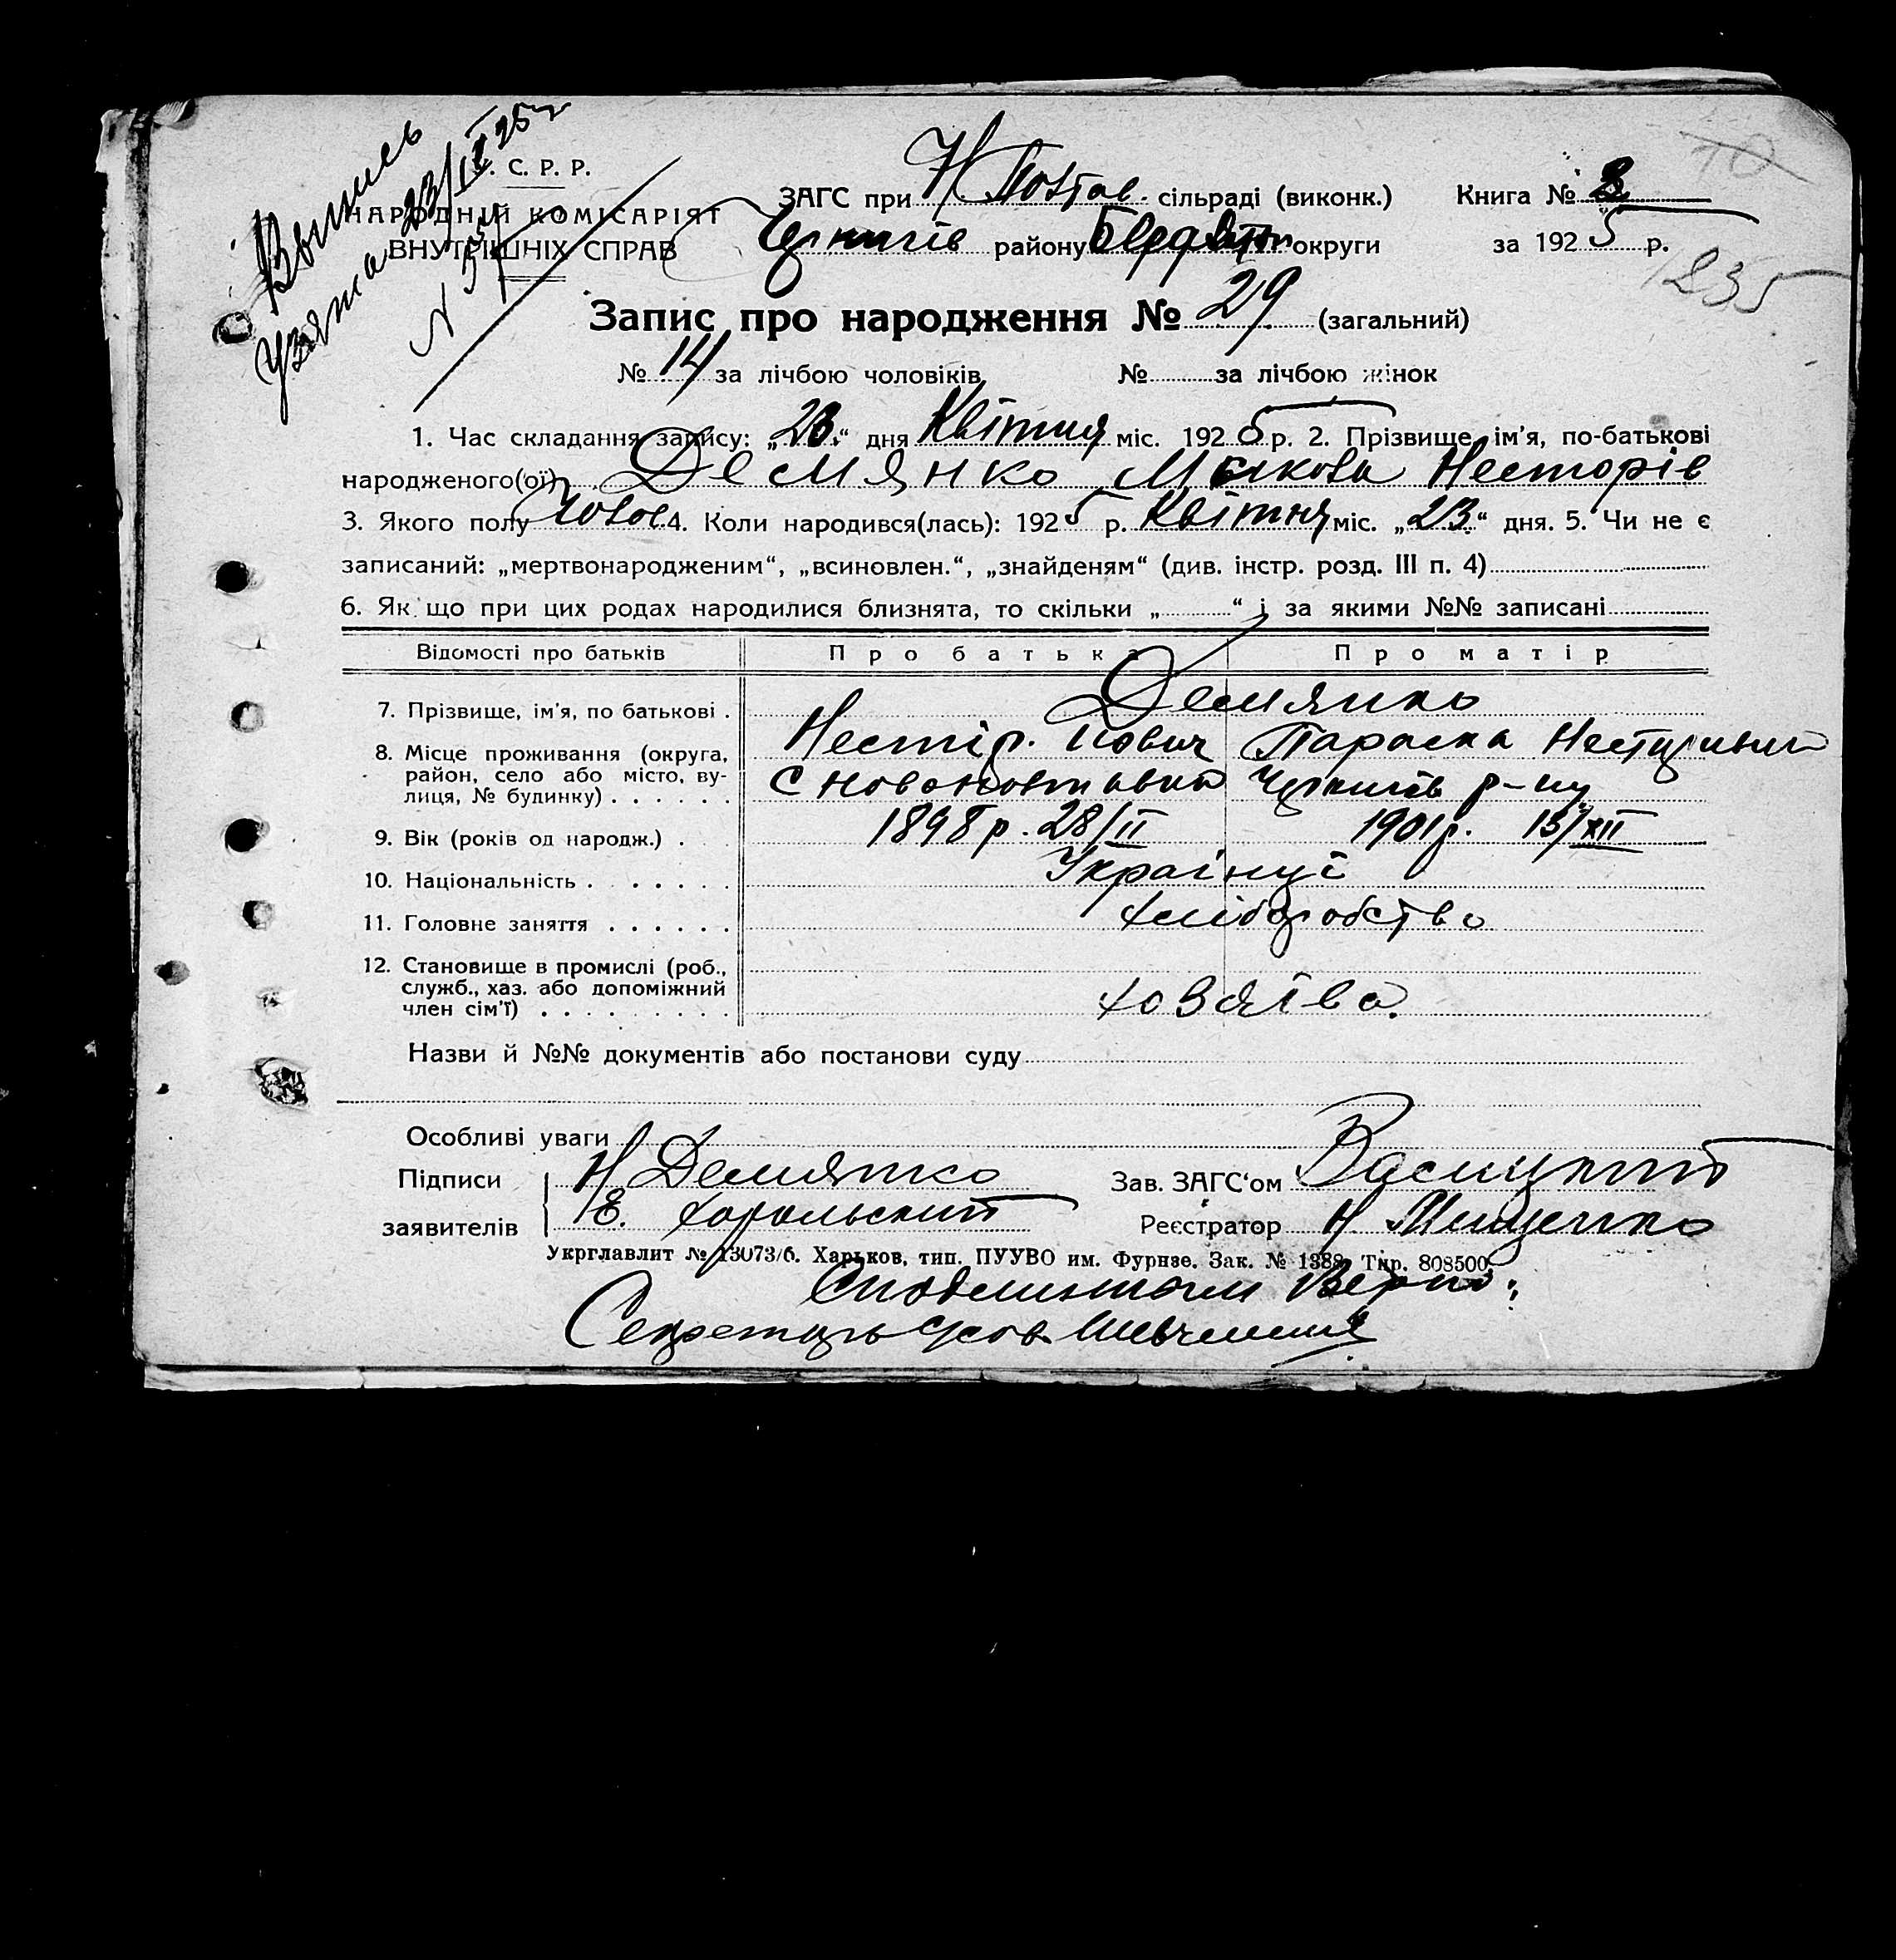 Выпись
Узята 23/IV 25 г
N
. С. Р. Р.
НАРОДНІЙ КОМІСАРІЯТ
ВНУТРІШНІХ СПРАВ
ЗАГС при Н Полтав. сільраді (виконк.)
Книга №
10
Чернигів району Бердян округи
за 1925 р.
235
Запис про народження № 29 (загальний)
№ 14 за лічбою чоловіків № за лічбою жінок
1. Час складання запису: „23“ дня Квітня міс. 1925 р. 2. Прізвище, ім'я, по-батькові
народженого(ої) Демянко Микола Несторів
3. Якого полу Чолов 4. Коли народився(лась): 1925 р. Квітня міс. „23“ дня. 5. Чи не є
записаний: „мертвонародженим“, „всиновлен.“, „знайденям“ (див. інстр. розд. III п. 4)
6. Як що при цих родах народилися близнята, то скільки „ “ і за якими №№ записані
Відомості про батьків Про батька Про матір
7. Прізвище, ім'я, по батькові . Демянко
Нестір. Параска
8. Місце проживання (округа,
район, село або місто, ву-
лиця, № будинку) . . . . . .
с Новополтавка Чернигів р-ну
9. Вік (років од народж.) . 1898 р. 28/II 1901 р. 15/XII
10. Національність . . . . . . . Українці
11. Головне заняття . . . . . . хліборобство
12. Становище в промислі (роб.,
служб., хаз. або допоміжний
член сім'ї) . . . . . . . . .
хозяїва.
Назви й №№ документів або постанови суду
Особливі уваги
Підписи Н Демянко Зав. ЗАГС'ом
заявителів Е. Хорольский Реєстратор Н Мищенко
Укрглавлит № 13073/б. Харьков, тип. ПУУВО им. Фурнзе. Зак. № 1388. Тир. 808500.
С подлинным верно:
Секретарь